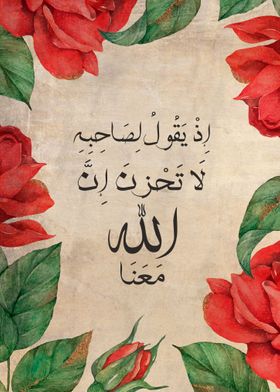 إِذْ يَقُولُ لِصَاحِبِهِ
لَا تَحْزَنْ إِنَّ
اللّٰه
مَعَنَا